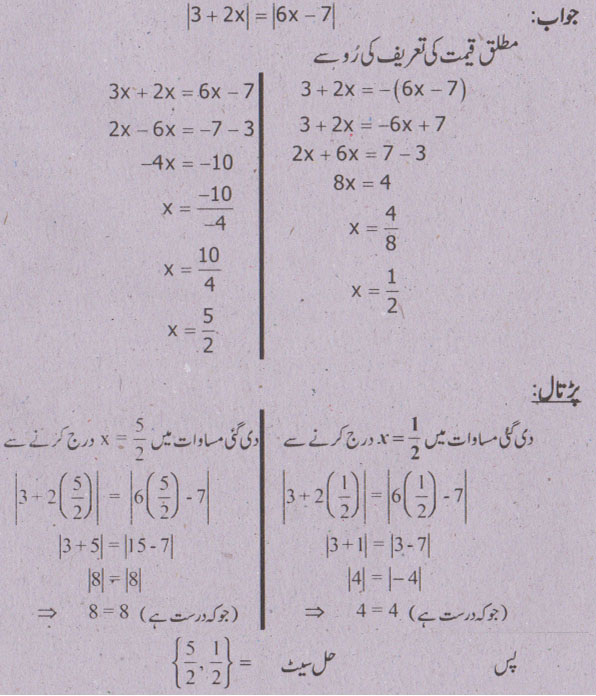 جواب: |3 + 2x| = |6x – 7|
مطلق قیمت کی تعریف کی رُو سے
3 + 2x = –(6x – 7)
3 + 2x = –6x + 7
2x + 6x = 7 – 3
8x = 4
x = 4/8
x = 1/2
3x + 2x = 6x – 7
2x – 6x = –7 – 3
–4x = –10
x = –10/–4
x = 10/4
x = 5/2
پڑتال:
دی گئی مساوات میں x = 1/2 درج کرنے سے
|3 + 2(1/2)| = |6(1/2) - 7|
|3 + 1| = |3 - 7|
|4| = |– 4|
⇒ 4 = 4 (جو کہ درست ہے)
دی گئی مساوات میں x = 5/2 درج کرنے سے
|3 + 2(5/2)| = |6(5/2) - 7|
|3 + 5| = |15 - 7|
|8| = |8|
⇒ 8 = 8 (جو کہ درست ہے)
پس حل سیٹ = {5/2, 1/2}